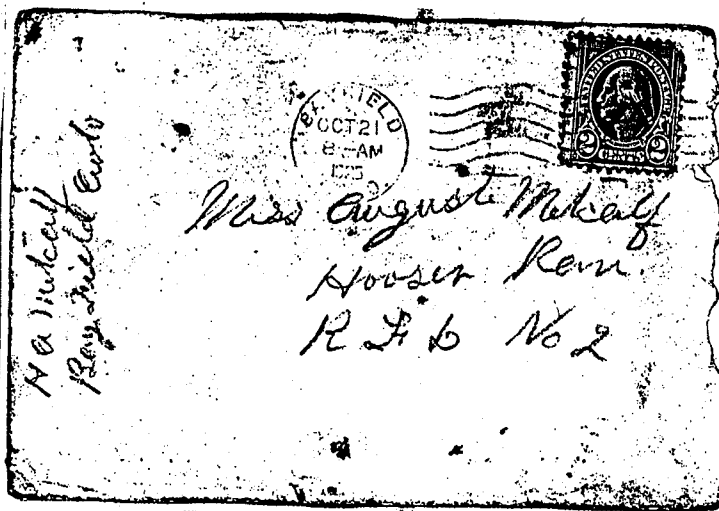 H A Metcalf
Bay Field Colo
BAYFIELD
OCT 21
8 - AM
UNITED STATES POSTAGE
2 CENTS 2
Miss August Metcalf
Hooser Kan.
R F D No 2